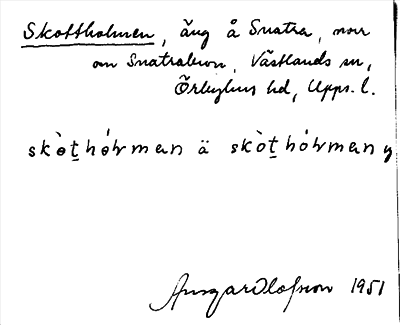 Skottholmen, äng å Snatra, norr
om Snatrabron, Västlands sn,
Örbyhus hd, Upps. l.
skòt̠hólman ä skòt̠hólman y
Ansgar Olofsson 1951